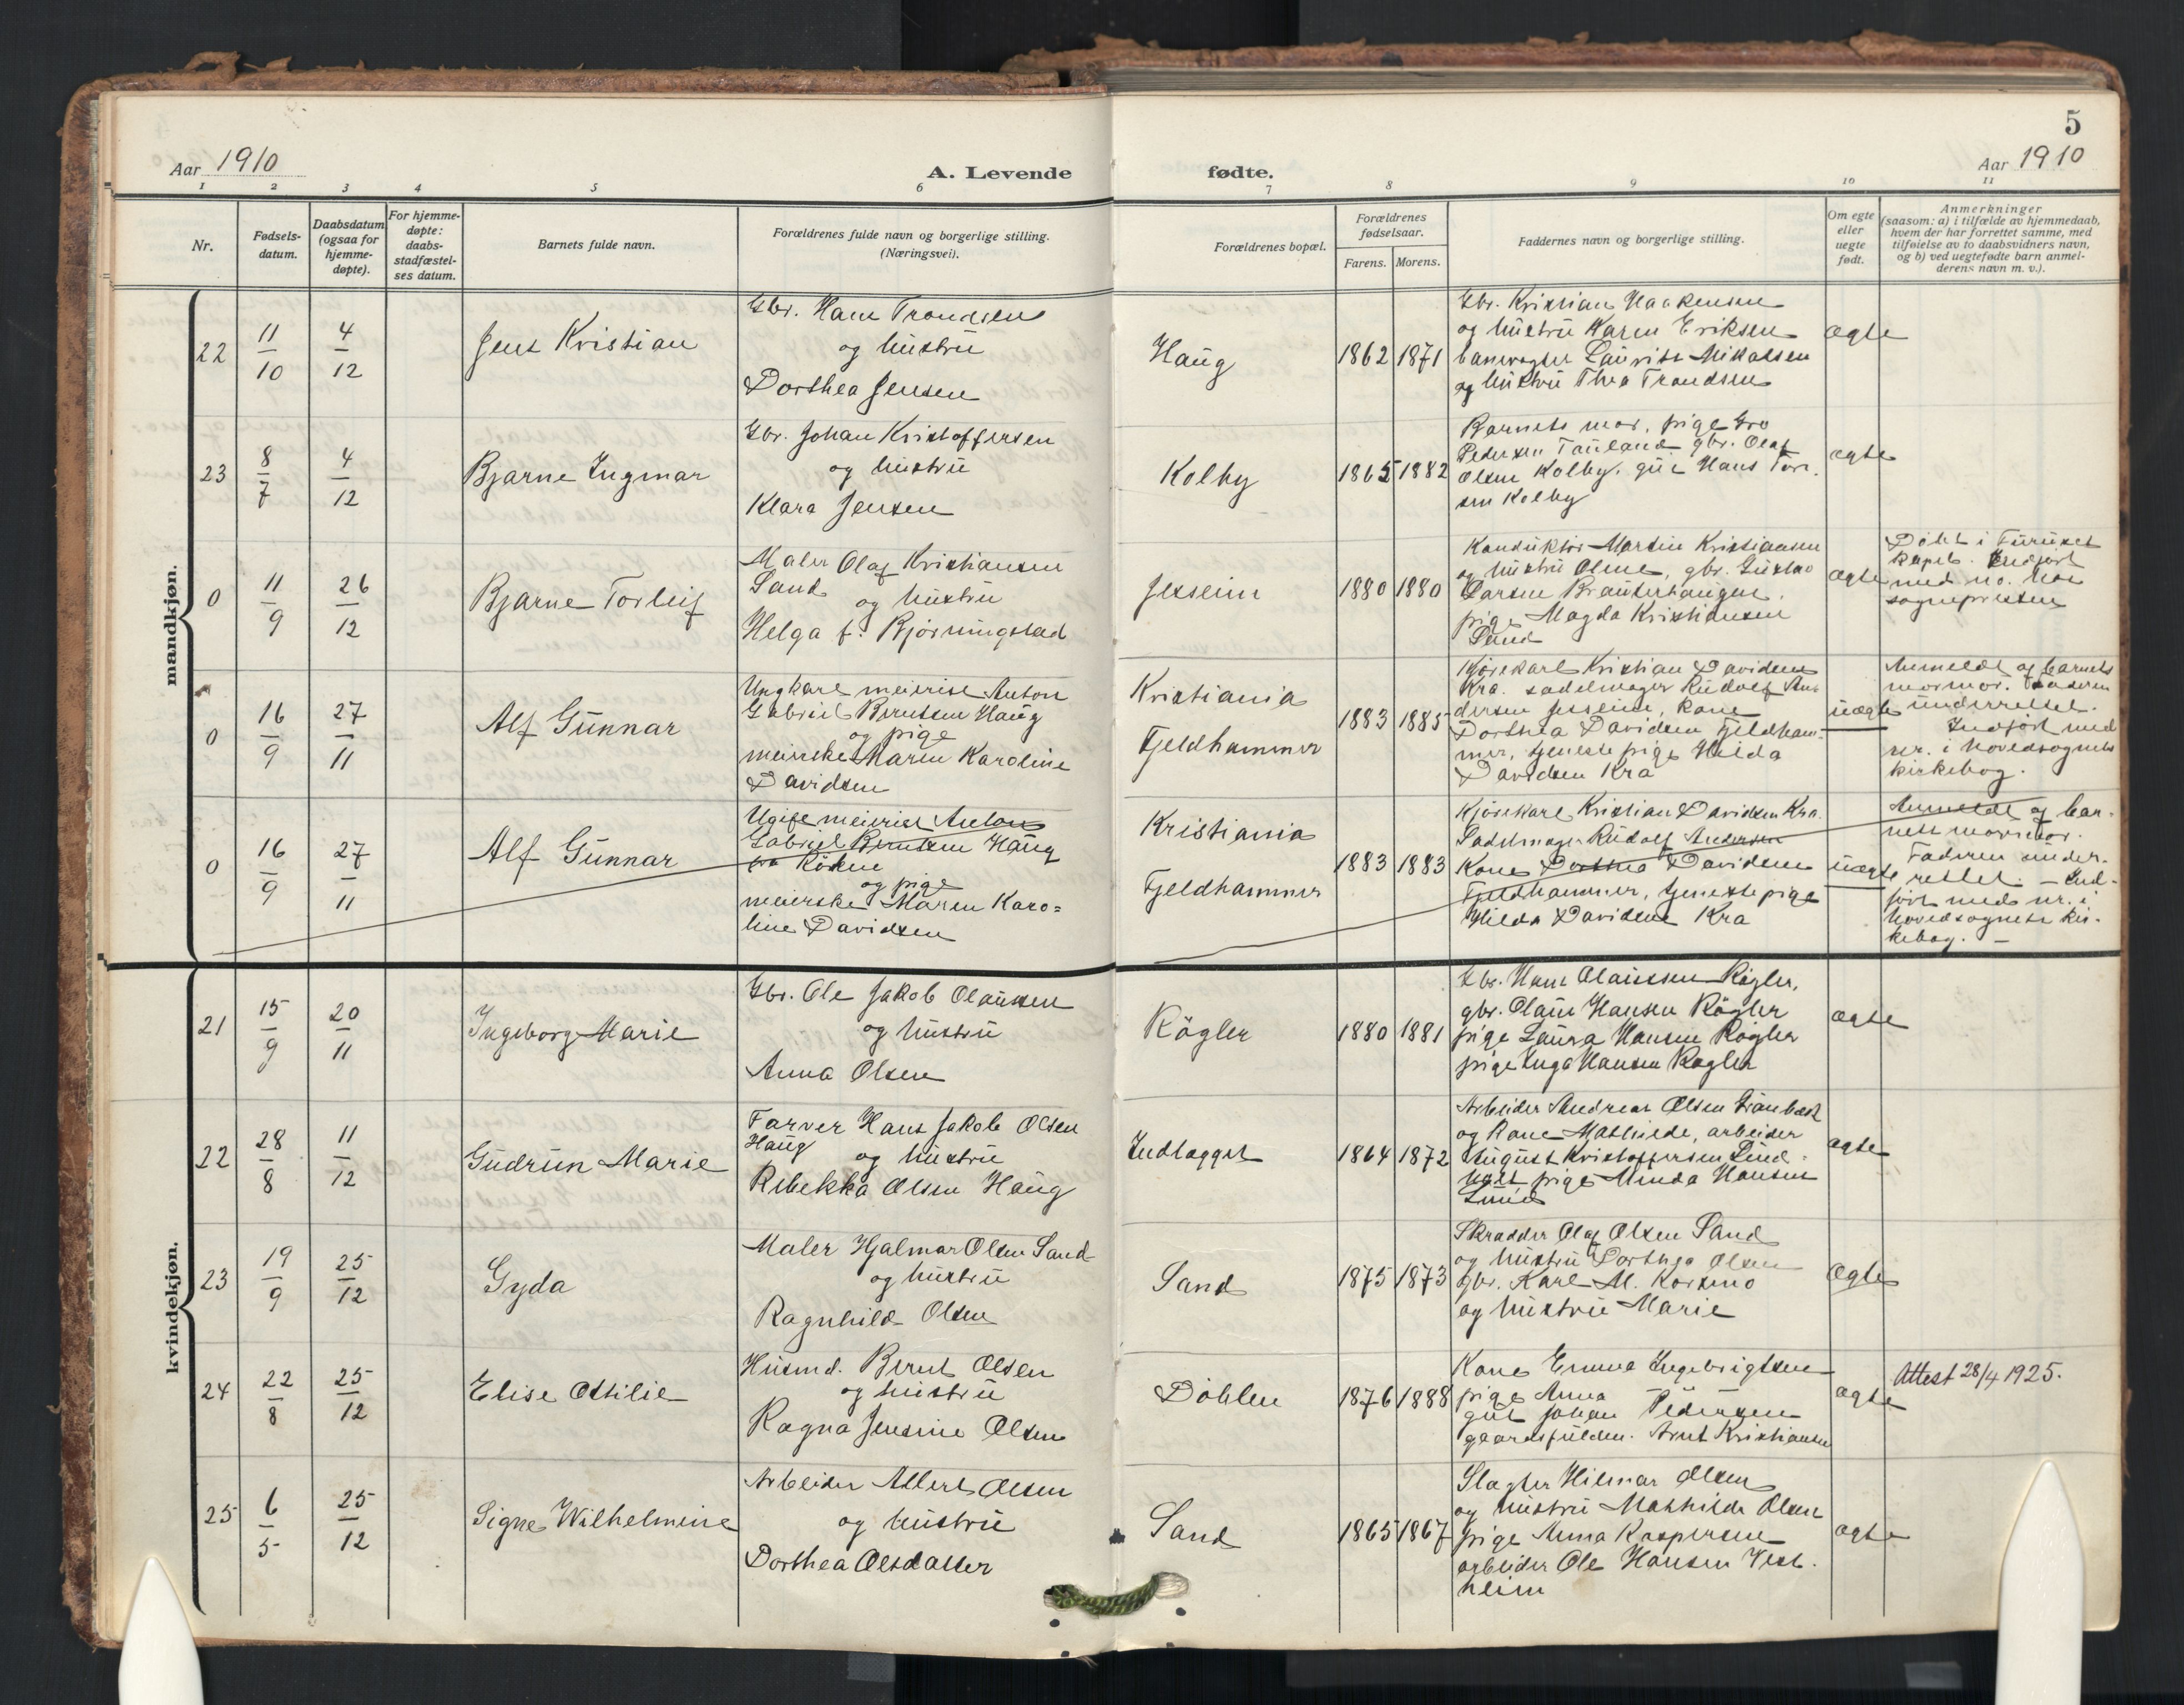 5
Aar 1910
A. Levende
fødte.
Aar 1910
1 2 3 4 5 6 7 8 9 10 11
Nr.
Fødsels-
datum.
Daabsdatum
(ogsaa for
hjemme-
døpte).
For hjemme-
døpte:
daabs-
stadfæstel-
ses datum.
Barnets fulde navn.
Forældrenes fulde navn og borgerlige stilling.
(Næringsvei).
Forældrenes bopæl.
Forældrenes
fødselsaar.
Farens. Morens.
Faddernes navn og borgerlige stilling.
Om egte
eller
uegte
født.
Anmerkninger
(saasom: a) i tilfælde av hjemmedaab,
hvem der har forrettet samme, med
tilføielse av to daabsvidners navn,
og b) ved uegtefødte barn anmel-
derens navn m. v.).
mandkjøn.
22
11
10
4
12
Jens Kristian
Gbr. Hans Trondsen
og hustru
Dorthea Jensen
Haug
1862 1871
Gbr. Kristian Haakensen
og hustru Karen Eriksen
banevogter Laurits Mikalsen
og hustru Thea Trondsen
ægte
23
8
7
4
12
Bjarne Ingmar
Gbr. Johan Kristoffersen
og hustru
Klara Jensen
Kolby
1865 1882
Barnets mor, pige Gro
Pedersen Tauland gbr. Olaf
Olsen Kolby, gut Hans Tor-
sen Kolby
ægte
0
11
9
26
12
Bjarne Torleif
Maler Olaf Kristiansen
Sand
og hustru
Helga f. Bjørningstad
Jesseim
1880 1880
Konduktør Martin Kristiansen
og hustru Oline, gbr. Gustav
Larsen Brauterhaugen,
pige Magda Kristiansen
Sand
ægte
Døbt i Furuset
kapel. Indført
med no. hos
sognepresten
0
16
9
27
11
Alf Gunnar
Ungkarl meierist Anton
Gabriel Berntsen Haug
og pige
meierske Maren Karoline
Davidsen
Kristiania
Fjeldhammer
1883 1885
Kjørekarl Kristian Davidsen
Kra. sadelmager Rudolf An-
dersen Jesseim, kone
Dorthea Davidsen Fjeldham-
mer, tjenestepige Hilda
Davidsen Kra
uægte
Anmeldt af barnets
mormor. Faderen
underrettet.
Indført med
nr. i hovedsognets
kirkebog.
0
16
9
27
11
Alf Gunnar
Ugift meierist Anton
Gabriel Berntsen Haug
fra Røken
og pige
meierske Maren Karo=
line Davidsen
Kristiania
Fjeldhammer
1883 1883
Kjørekarl Kristian Davidsen Kra.
Sadelmager Rudolf Andersen
Kone Dorthea Davidsen
Fjeldhammer, tjenestepige
Hilda Davidsen Kra
uægte
Anmeldt af bar-
nets mormor.
Faderen under-
rettet. - Ind-
ført med nr. i
hovedsognets kir-
kebog. -
kvindekjøn.
21
15
9
20
11
Ingeborg Marie
Gbr. Ole Jakob Olaussen
og hustru
Anna Olsen
Rögler
1880 1881
Gbr. Hans Olaussen Rögler,
gbr. Olaus Hansen Rögler
pige Laura Hansen Rögler
pige Inga Hansen Rögler
ægte
22
28
8
11
12
Gudrun Marie
Farver Hans Jakob Olsen
Haug
og hustru
Rebekka Olsen Haug
Indlagget
1864 1872
Arbeider Andreas Olsen
og kone Mathilde, arbeider
August Kristoffersen Lund-
pige Minda Hansen
Lund
ægte
23
19
9
25
12
Gyda
Maler Hjalmar Olsen Sand
og hustru
Ragnhild Olsen
Sand
1875 1873
Skrædder Olaf Olsen Sand
og hustru Dorthea Olsen
gbr. Karl M. Korsmo
og hustru Marie
ægte
24
22
8
25
12
Elise Ottilie
Husmd. Bernt Olsen
og hustru
Ragna Jensine Olsen
Döhlen
1876 1888
Kone Emma Ingebrigtsen
pige Anna
gut Johan Pedersen
gaardsfulden. Arnt Kristiansen
ægte
Attest 28/4 1925.
25
6
5
25
12
Signe Wilhelmine
Arbeider Albert Olsen
og hustru
Dorthea Olsdatter
Sand
1865 1867
Slagter Hilmar Olsen
og hustru Mathilde Olsen
pige Anna Kaspersen
arbeider Ole Hansen Vest-
heim
ægte